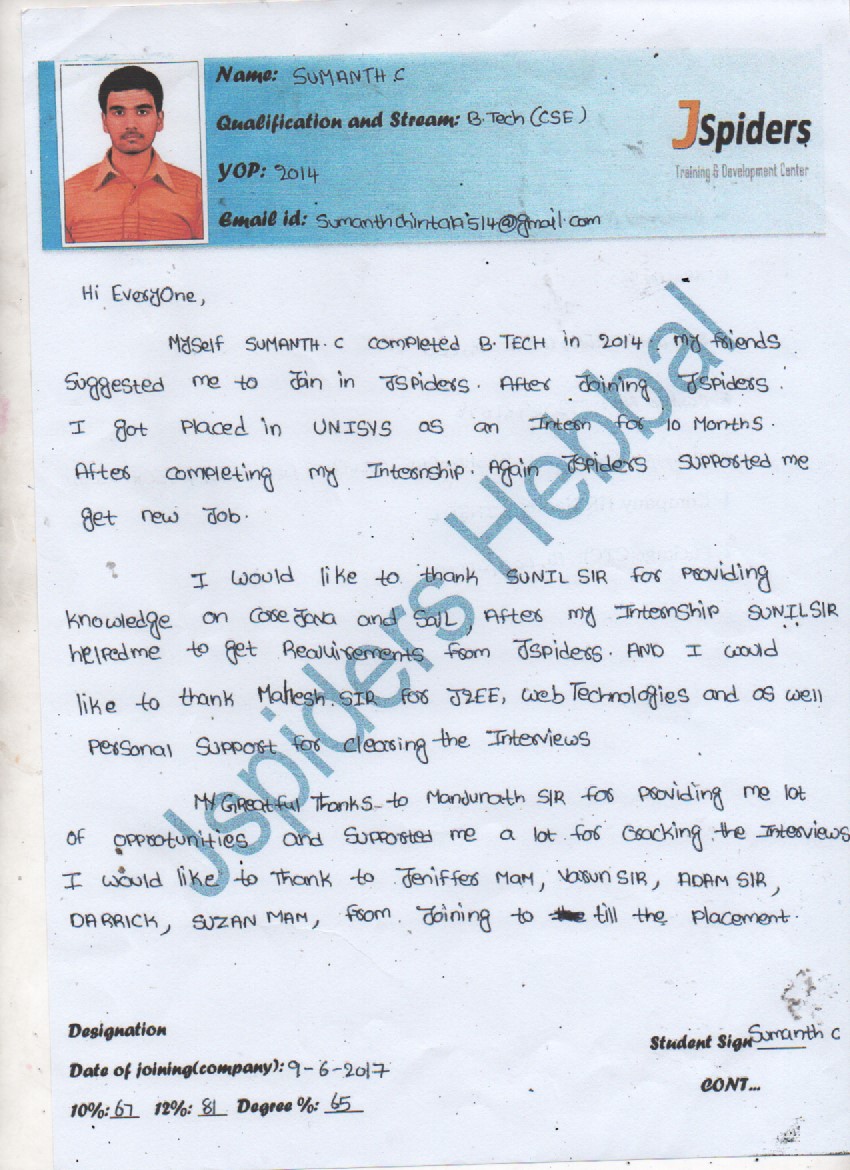 Name: SUMANTH.C
Qualification and Stream: B.Tech (CSE)
YOP: 2014
Email id: Sumanthchintala514@gmail.com
JSpiders
Training & Development Center
Hi EveryOne,
Myself SUMANTH.C completed B.TECH in 2014. My friends
Suggested me to Join in JSpiders. After Joining JSpiders.
I got placed in UNISYS as an Intern for 10 Months.
After completing my Internship. Again JSpiders supported me
get new Job.
I would like to thank SUNIL SIR for providing
knowledge on Core Java and SQL, After my InternShip SUNILSIR
helpedme to get Requirements from JSpiders. AND I would
like to thank Mahesh.SIR for J2EE, Web Technologies and as well
Personal Support for clearing the Interviews
My GReatful Thanks to Manjunath SIR for providing me lot
of opprotunities and supported me a lot for Cracking the Interviews
I would like to Thank to Jeniffer MaM, Varun SIR, ADAM SIR,
DARRICK, SUZAN MAM, from Joining to the till the placement.
Jspiders Hebbal
Designation
Student Sign Sumanth C
Date of joining(company): 9-6-2017
CONT...
10%: 67 12%: 81 Degree %: 65